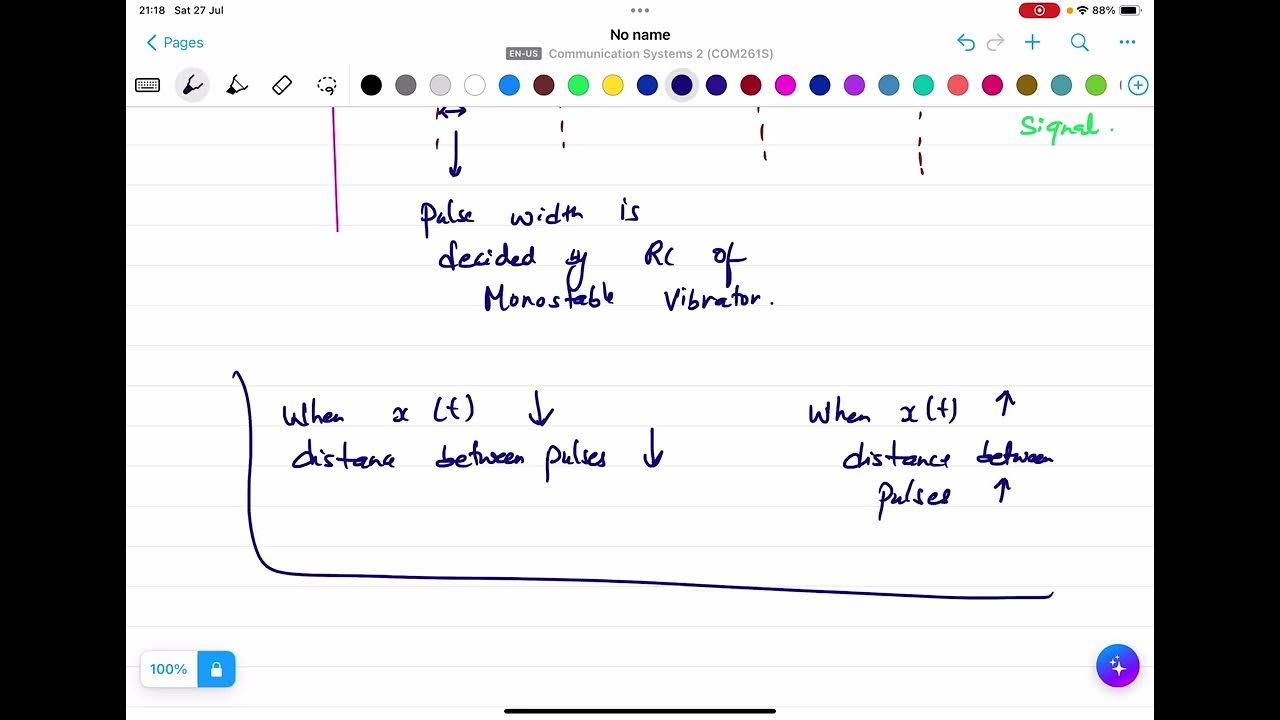 21:18 Sat 27 Jul
88%
Pages
No name
EN-US Communication Systems 2 (COM261S)
Signal.
Pulse width is
decided by RC of
Monostable Vibrator.
When x(t) ↓
distance between pulses ↓
When x(t) ↑
distance between
pulses ↑
100%